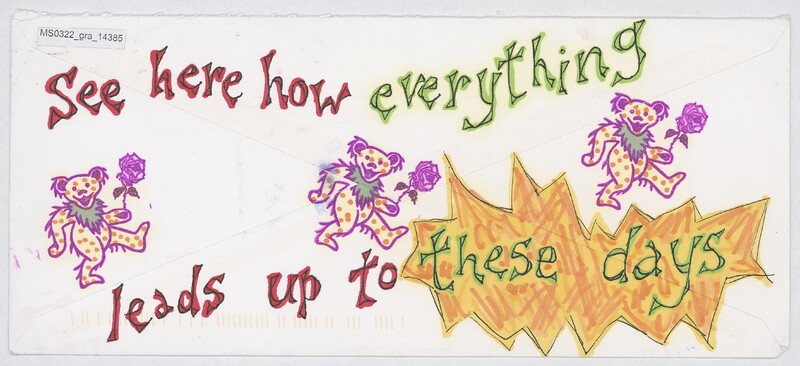 MS0322_gra_14385
See here how everything
leads up to these days